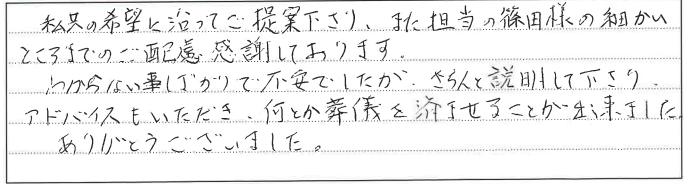 私共の希望に沿ってご提案下さり、また担当の篠田様の細かい
ところまでのご配慮感謝しております。
わからない事ばかりで不安でしたが、きちんと説明して下さり、
アドバイスもいただき、何とか葬儀を済ませることが出来ました。
ありがとうございました。